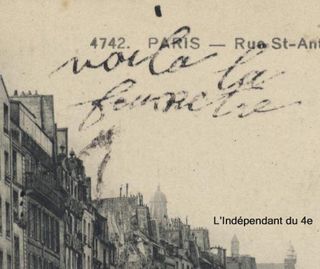 4742. PARIS — Rue St-Ant
voilà la
fenetre
L'Indépendant du 4e